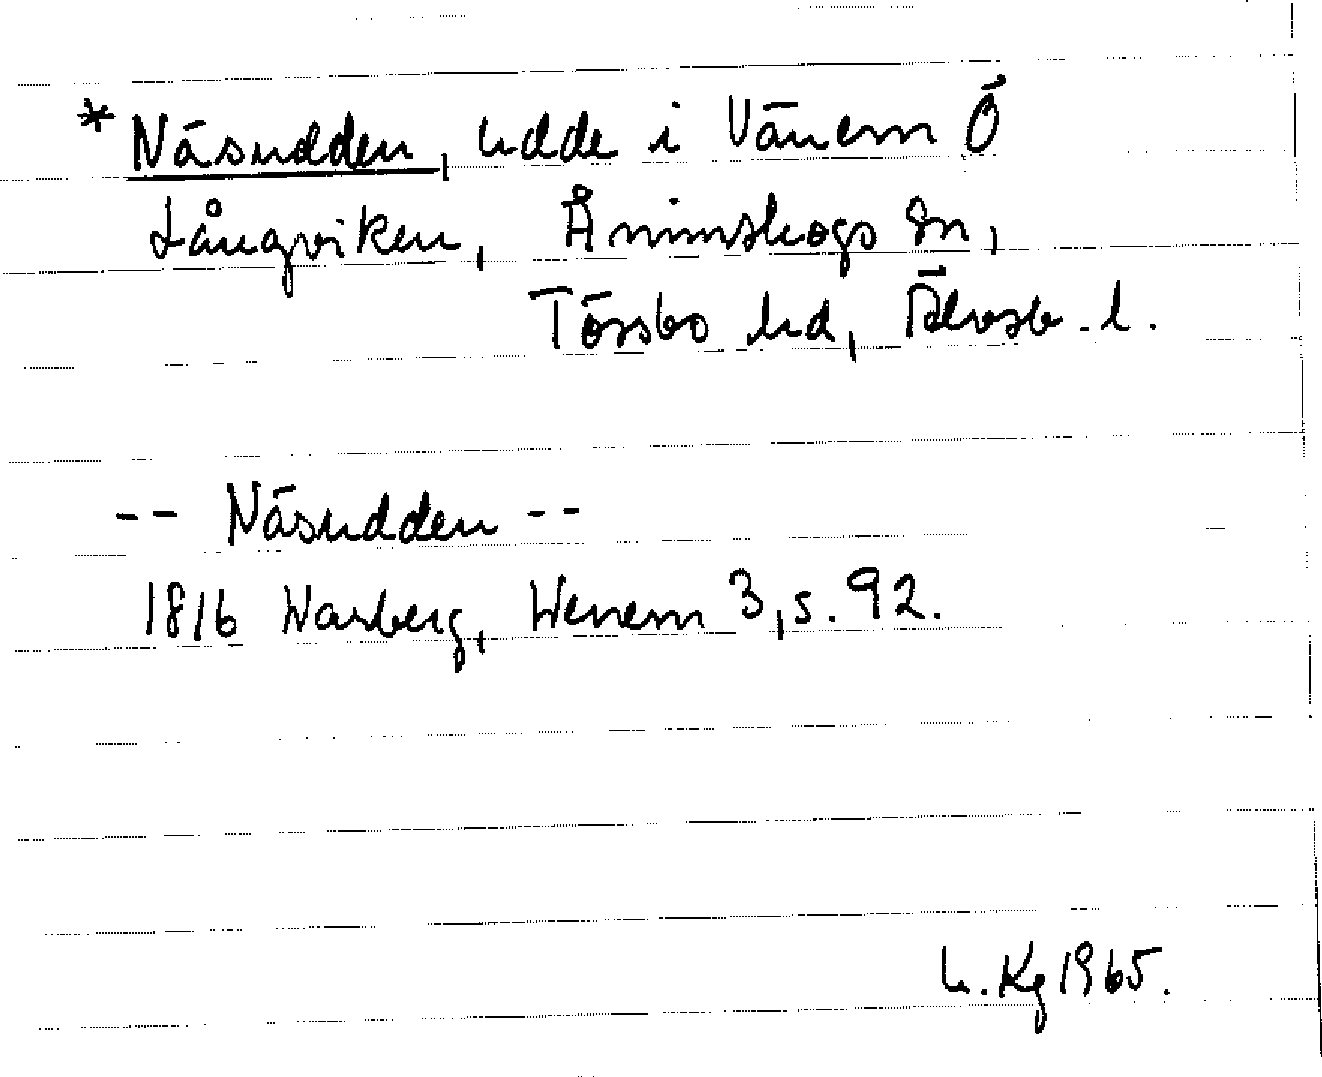 * Näsudden, udde i Vänern Ö
Långviken, Ånimskogs sn,
Tössbo hd, Älvsb. l.
-- Näsudden --
1816 Warberg, Wenern 3, s. 92.
Kg 1965.